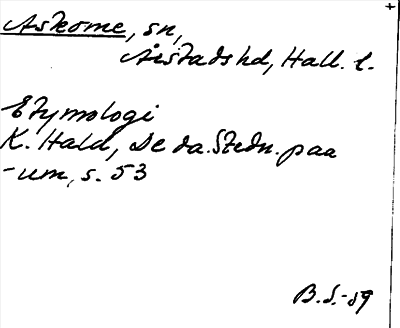 Askome, sn,
Årstads hd, Hall. l.
Etymologi
K. Hald, De da. Stedn. paa
-um, s. 53
B.S.-59